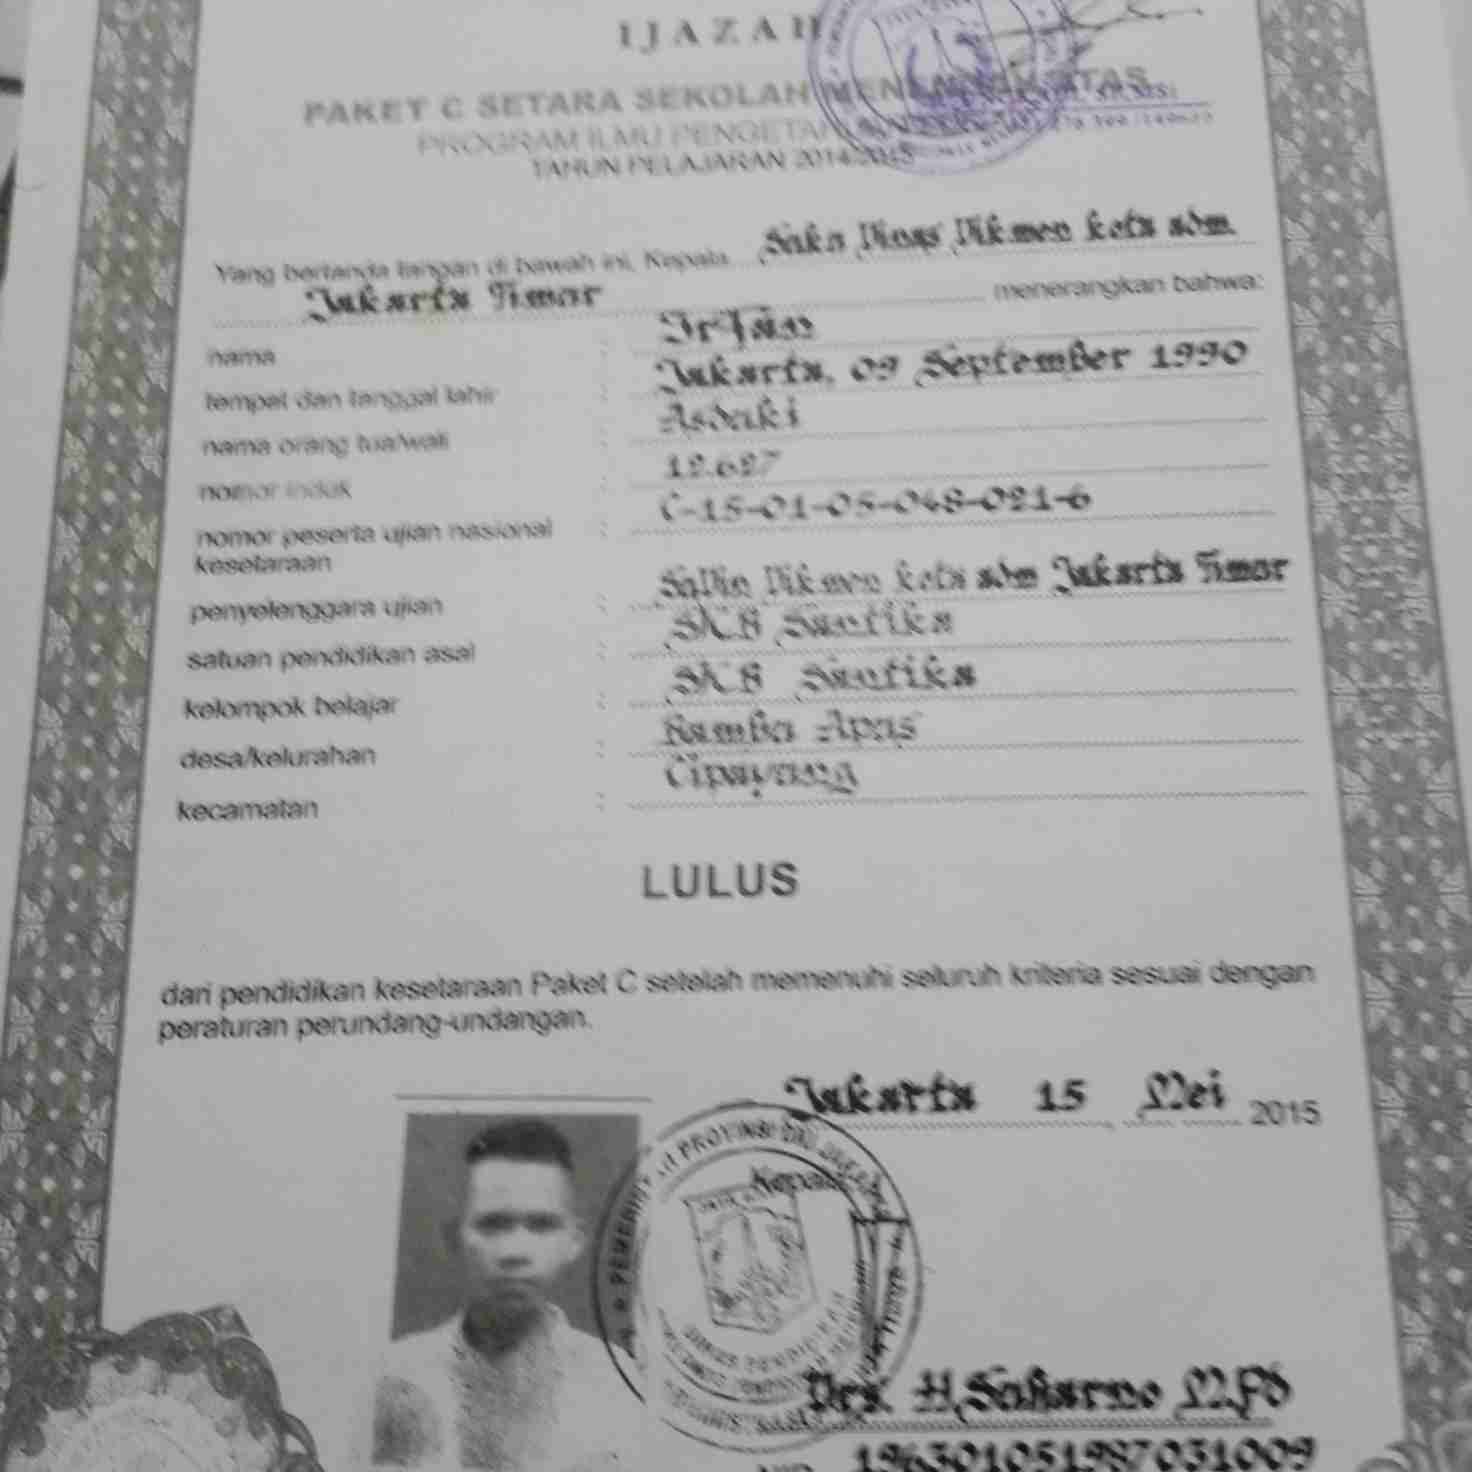 IJAZAH
PAKET C SETARA SEKOLAH MENENGAH ATAS
PROGRAM ILMU PENGETAHUAN
TAHUN PELAJARAN 2014/2015
Yang bertanda tangan di bawah ini, Kepala Suku Dinas Dikmen kota adm.
Jakarta Timur menerangkan bahwa:
nama : Irfan
tempat dan tanggal lahir : Jakarta, 09 September 1990
nama orang tua/wali : Asdaki
nomor induk : 12.627
nomor peserta ujian nasional : C-15-01-05-048-021-6
kesetaraan
penyelenggara ujian : Sudin Dikmen kota adm Jakarta Timur
satuan pendidikan asal : SKB Santika
kelompok belajar : SKB Santika
desa/kelurahan : Bambu Apus
kecamatan : Cipayung
LULUS
dari pendidikan kesetaraan Paket C setelah memenuhi seluruh kriteria sesuai dengan
peraturan perundang-undangan.
Jakarta 15 Mei 2015
Kepala
Drs. H. Suharno M.Pd
NIP 196301051987031009